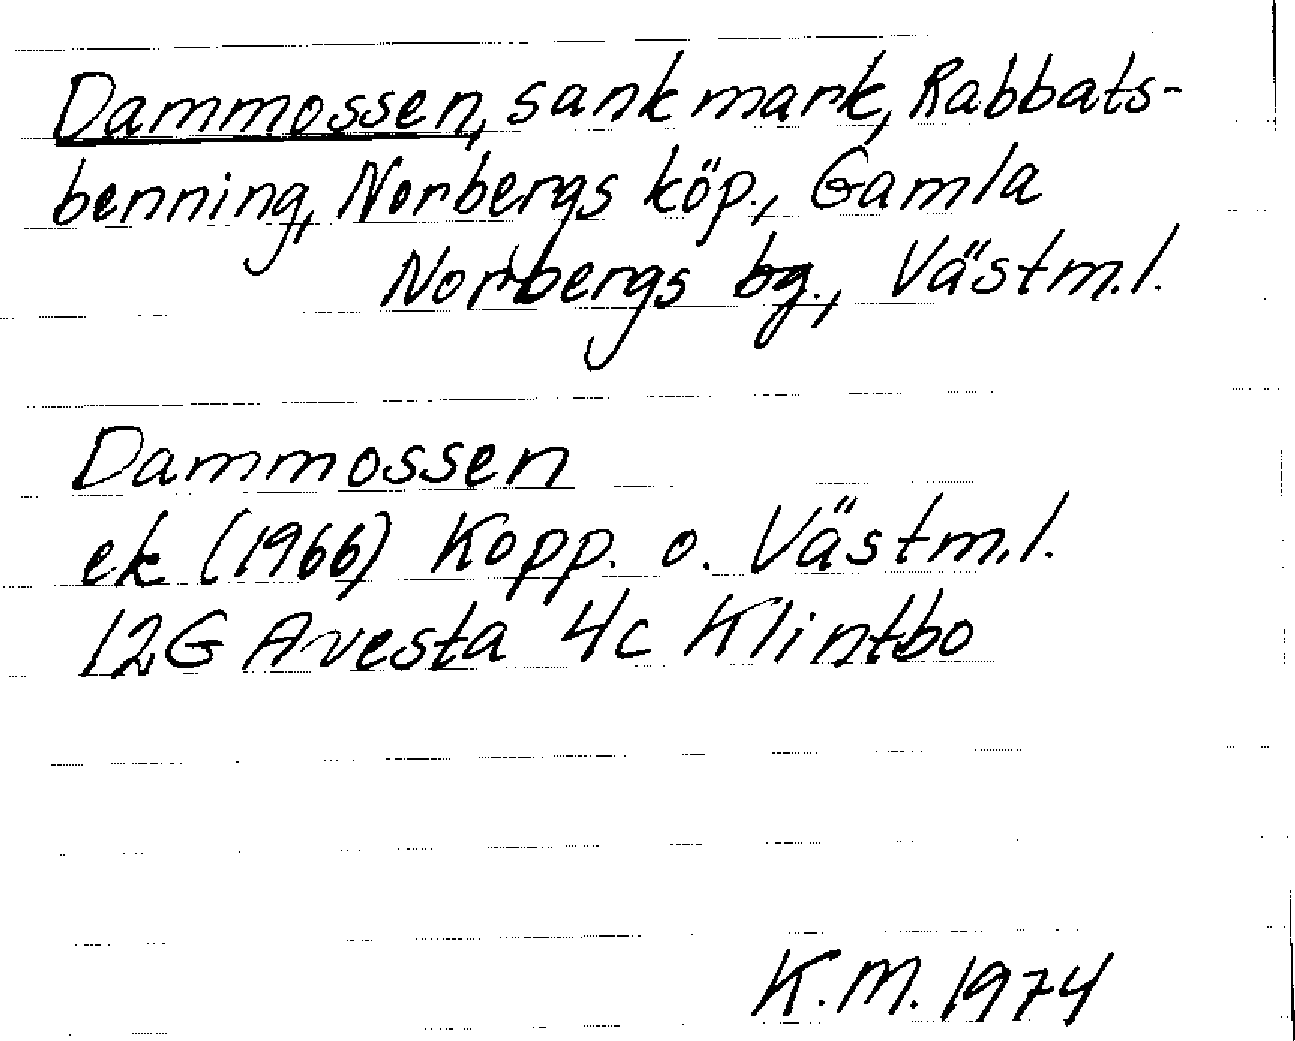 Dammossen, sank mark, Rabbats-
benning, Norbergs köp., Gamla
Norbergs bg., Västm.l.
Dammossen
ek (1966) Kopp. o. Västm.l.
12G Avesta 4c Klintbo
K.M. 1974